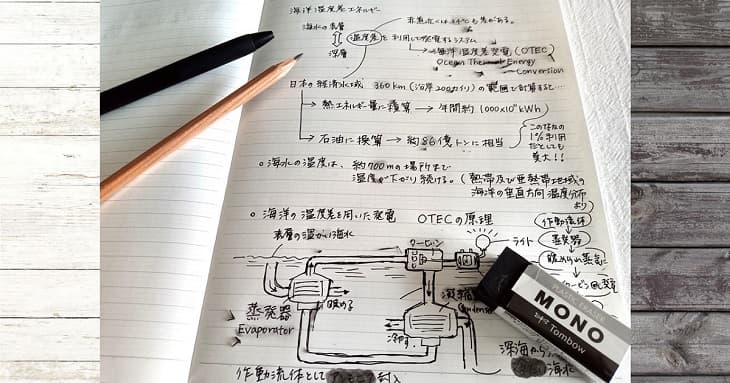 海洋温度差エネルギー
赤道近くは24℃も差がある。
海水の表層
温度差を利用して発電するシステム
深層
海洋温度差発電(OTEC)
Ocean Thermal Energy
Conversion
日本の経済水域 360km(海岸200カイリ)の範囲で計算すると…
熱エネルギー量に換算 → 年間約 1000×10¹¹kWh
石油に換算 → 約86億トンに相当
このなかの
1%利用
だとしても
莫大!!
○海水の温度は、約700mの場所まで
温度が下がり続ける。(熱帯及び亜熱帯地域の
海洋の垂直方向温度分布
より
○海洋の温度差を用いた発電 OTECの原理
表層の温かい海水
タービン
ライト
作動流体
蒸発器
暖められ蒸気に
タービン回し発電
蒸発器
Evaporator
暖める
冷やす
凝縮
Condenser
PLASTIC ERASER
MONO
Tombow
深海から
海水
作動流体として アンモニア封入